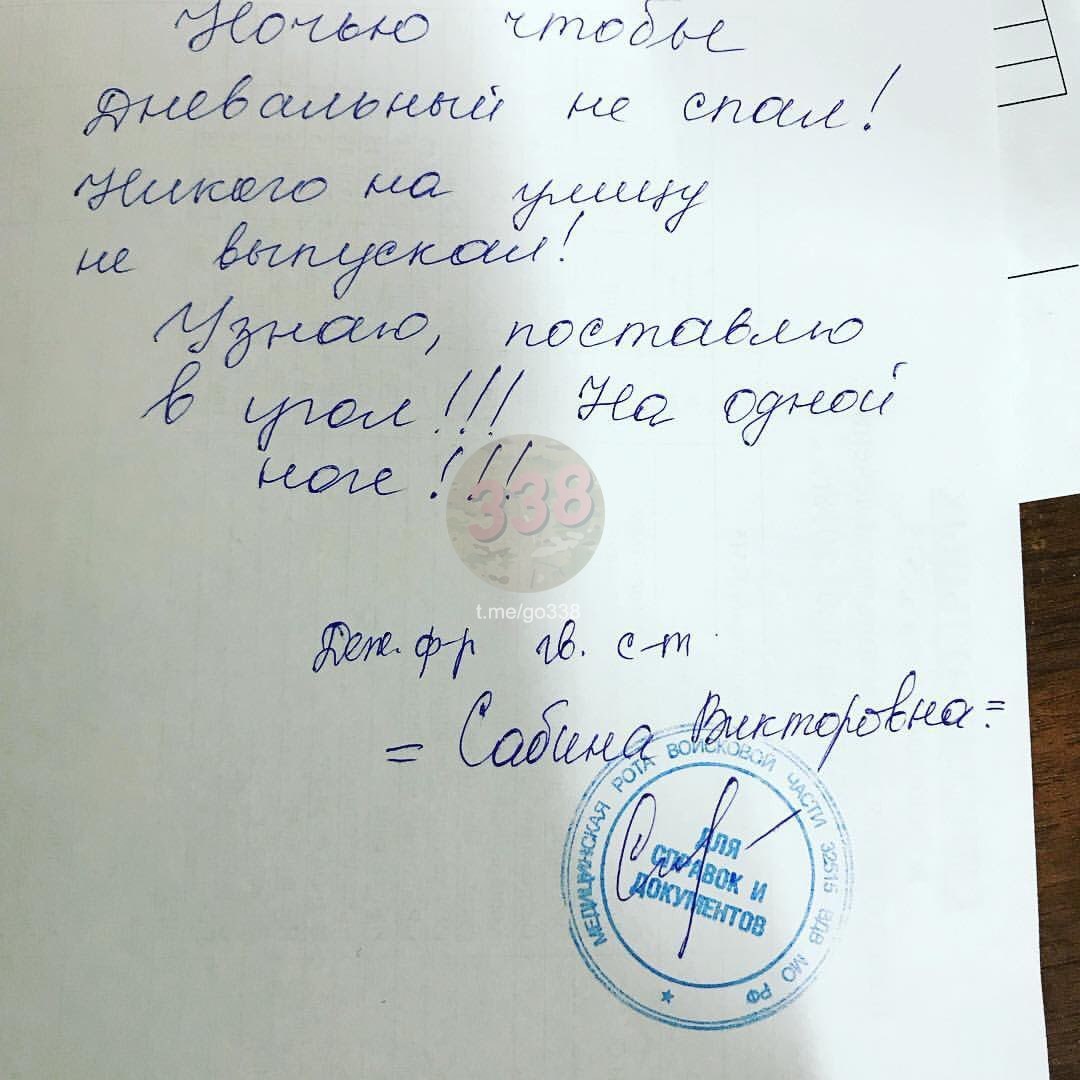 Ночью чтобы
дневальный не спал!
Никого на улицу
не выпускал!
Узнаю, поставлю
в угол!!! На одной
ноге!!!
338
t.me/go338
Деж. ф-р гв. с-т
= Сабина Викторовна =
МЕДИЦИНСКАЯ РОТА ВОЙСКОВОЙ ЧАСТИ 32515 ВДВ МО РФ
ДЛЯ
СПРАВОК И
ДОКУМЕНТОВ